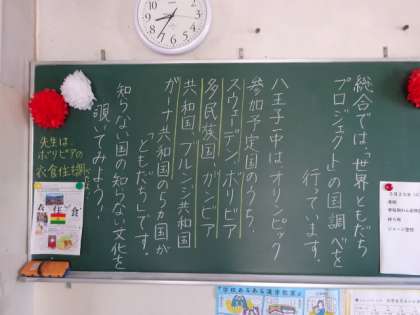 総合では、「世界ともだち
プロジェクト」の国調べを
行っています。
八王子一中はオリンピック
参加予定国のうち
スウェーデン、ボリビア
多民族国、ガンビア
共和国、ブルンジ共和国
ガーナ共和国の5カ国が
「ともだち」です。
知らない国の知らない文化を
覗いてみよう!
先生は
ボリビアの
衣食住を調
衣 住 食
「学校あるある漢字教室」